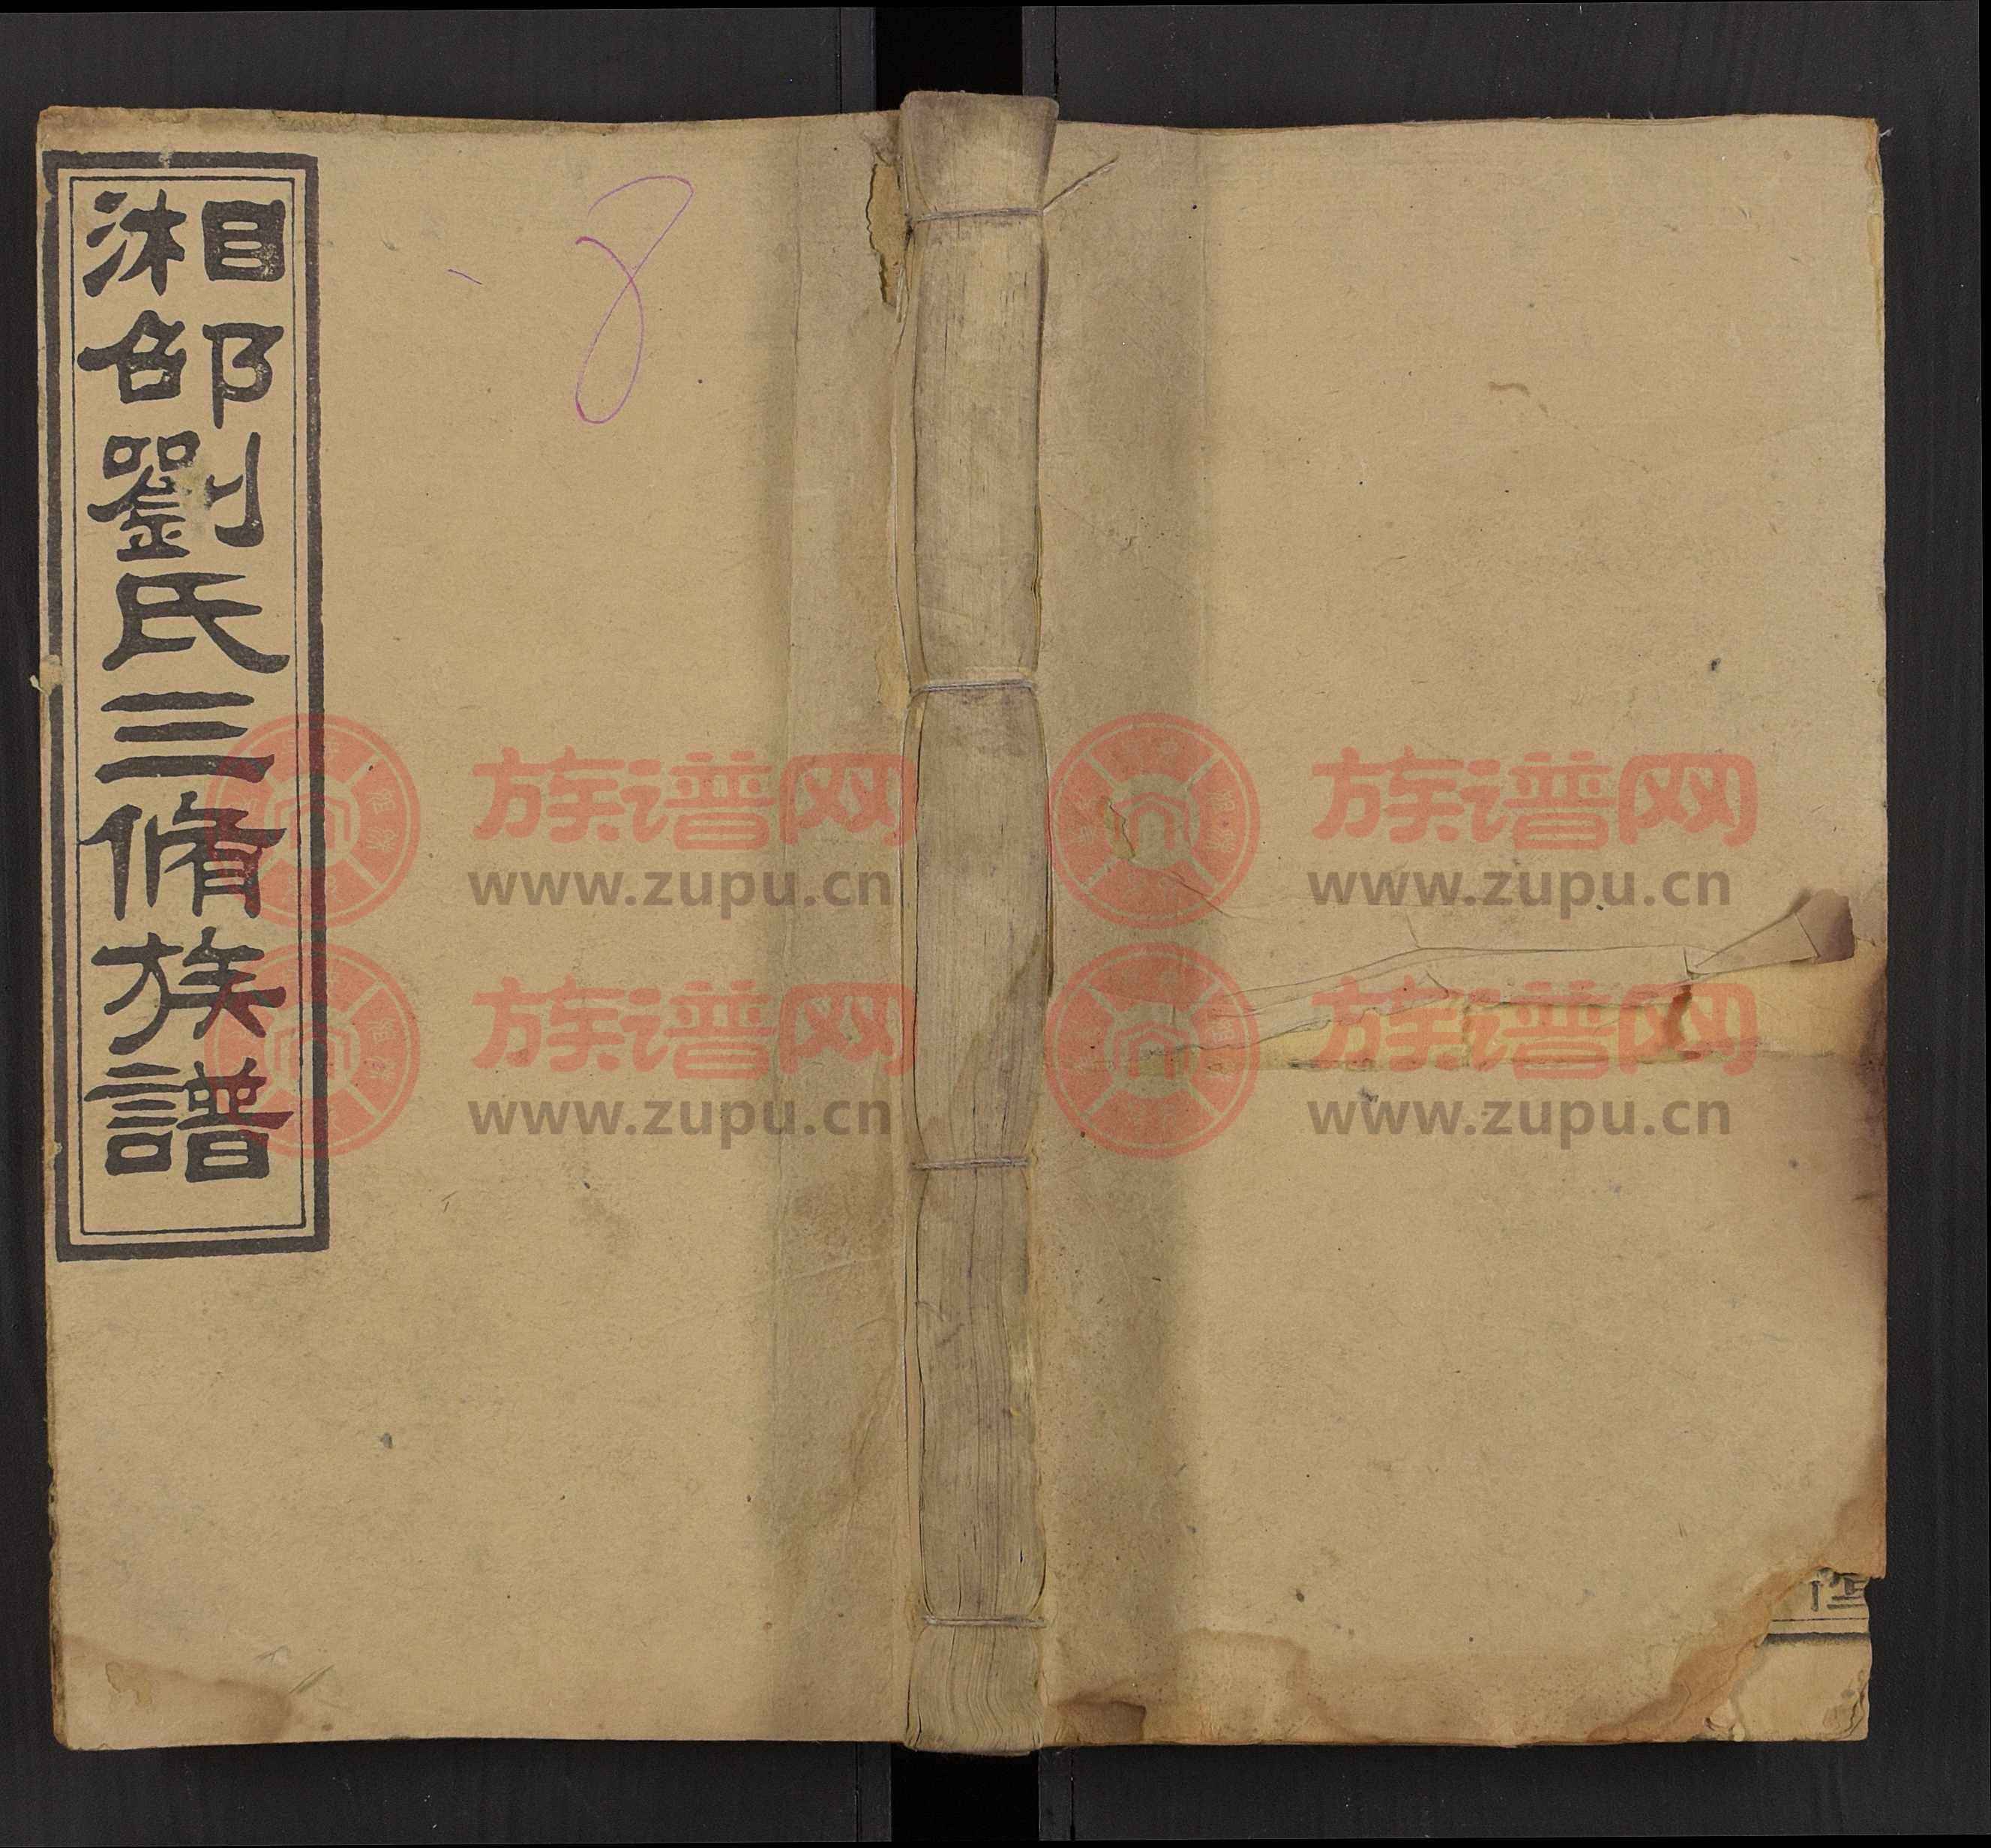 湘邵劉氏三脩族譜
8
族谱网
www.zupu.cn
族谱网
www.zupu.cn
族谱网
www.zupu.cn
族谱网
www.zupu.cn